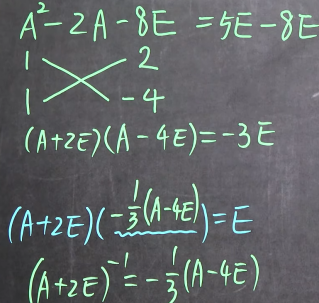 A² - 2A - 8E = 5E - 8E
1 2
1 -4
(A+2E)(A-4E) = -3E
(A+2E)(-1/3(A-4E)) = E
(A+2E)⁻¹ = -1/3(A-4E)